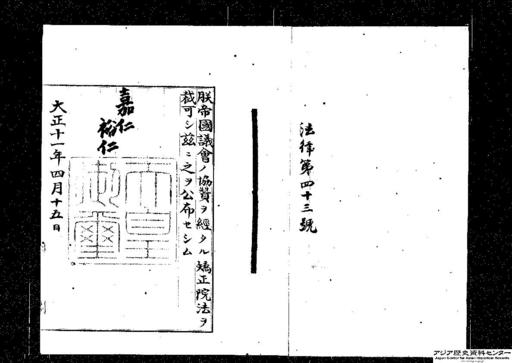 法律第四十三號
朕帝國議會ノ協賛ヲ經タル矯正院法ヲ
裁可シ玆ニ之ヲ公布セシム
嘉仁
裕仁
天皇
御璽
大正十一年四月十五日
アジア歴史資料センター
Japan Center for Asian Historical Records